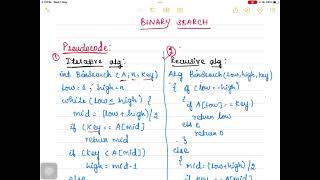 BINARY SEARCH
Pseudocode:
① Iterative alg:
int BinSearch (A, n, key)
low=1, high=n
while (low ≤ high) {
mid = (low+high)/2
if (key == A[mid])
return mid
if (key < A[mid])
high = mid-1
else
② Recursive alg:
Alg BinSearch(low, high, key)
{ if (low==high)
{ if (A[low] == key)
return low
else
return 0
}
else
{ mid=(low+high)/2